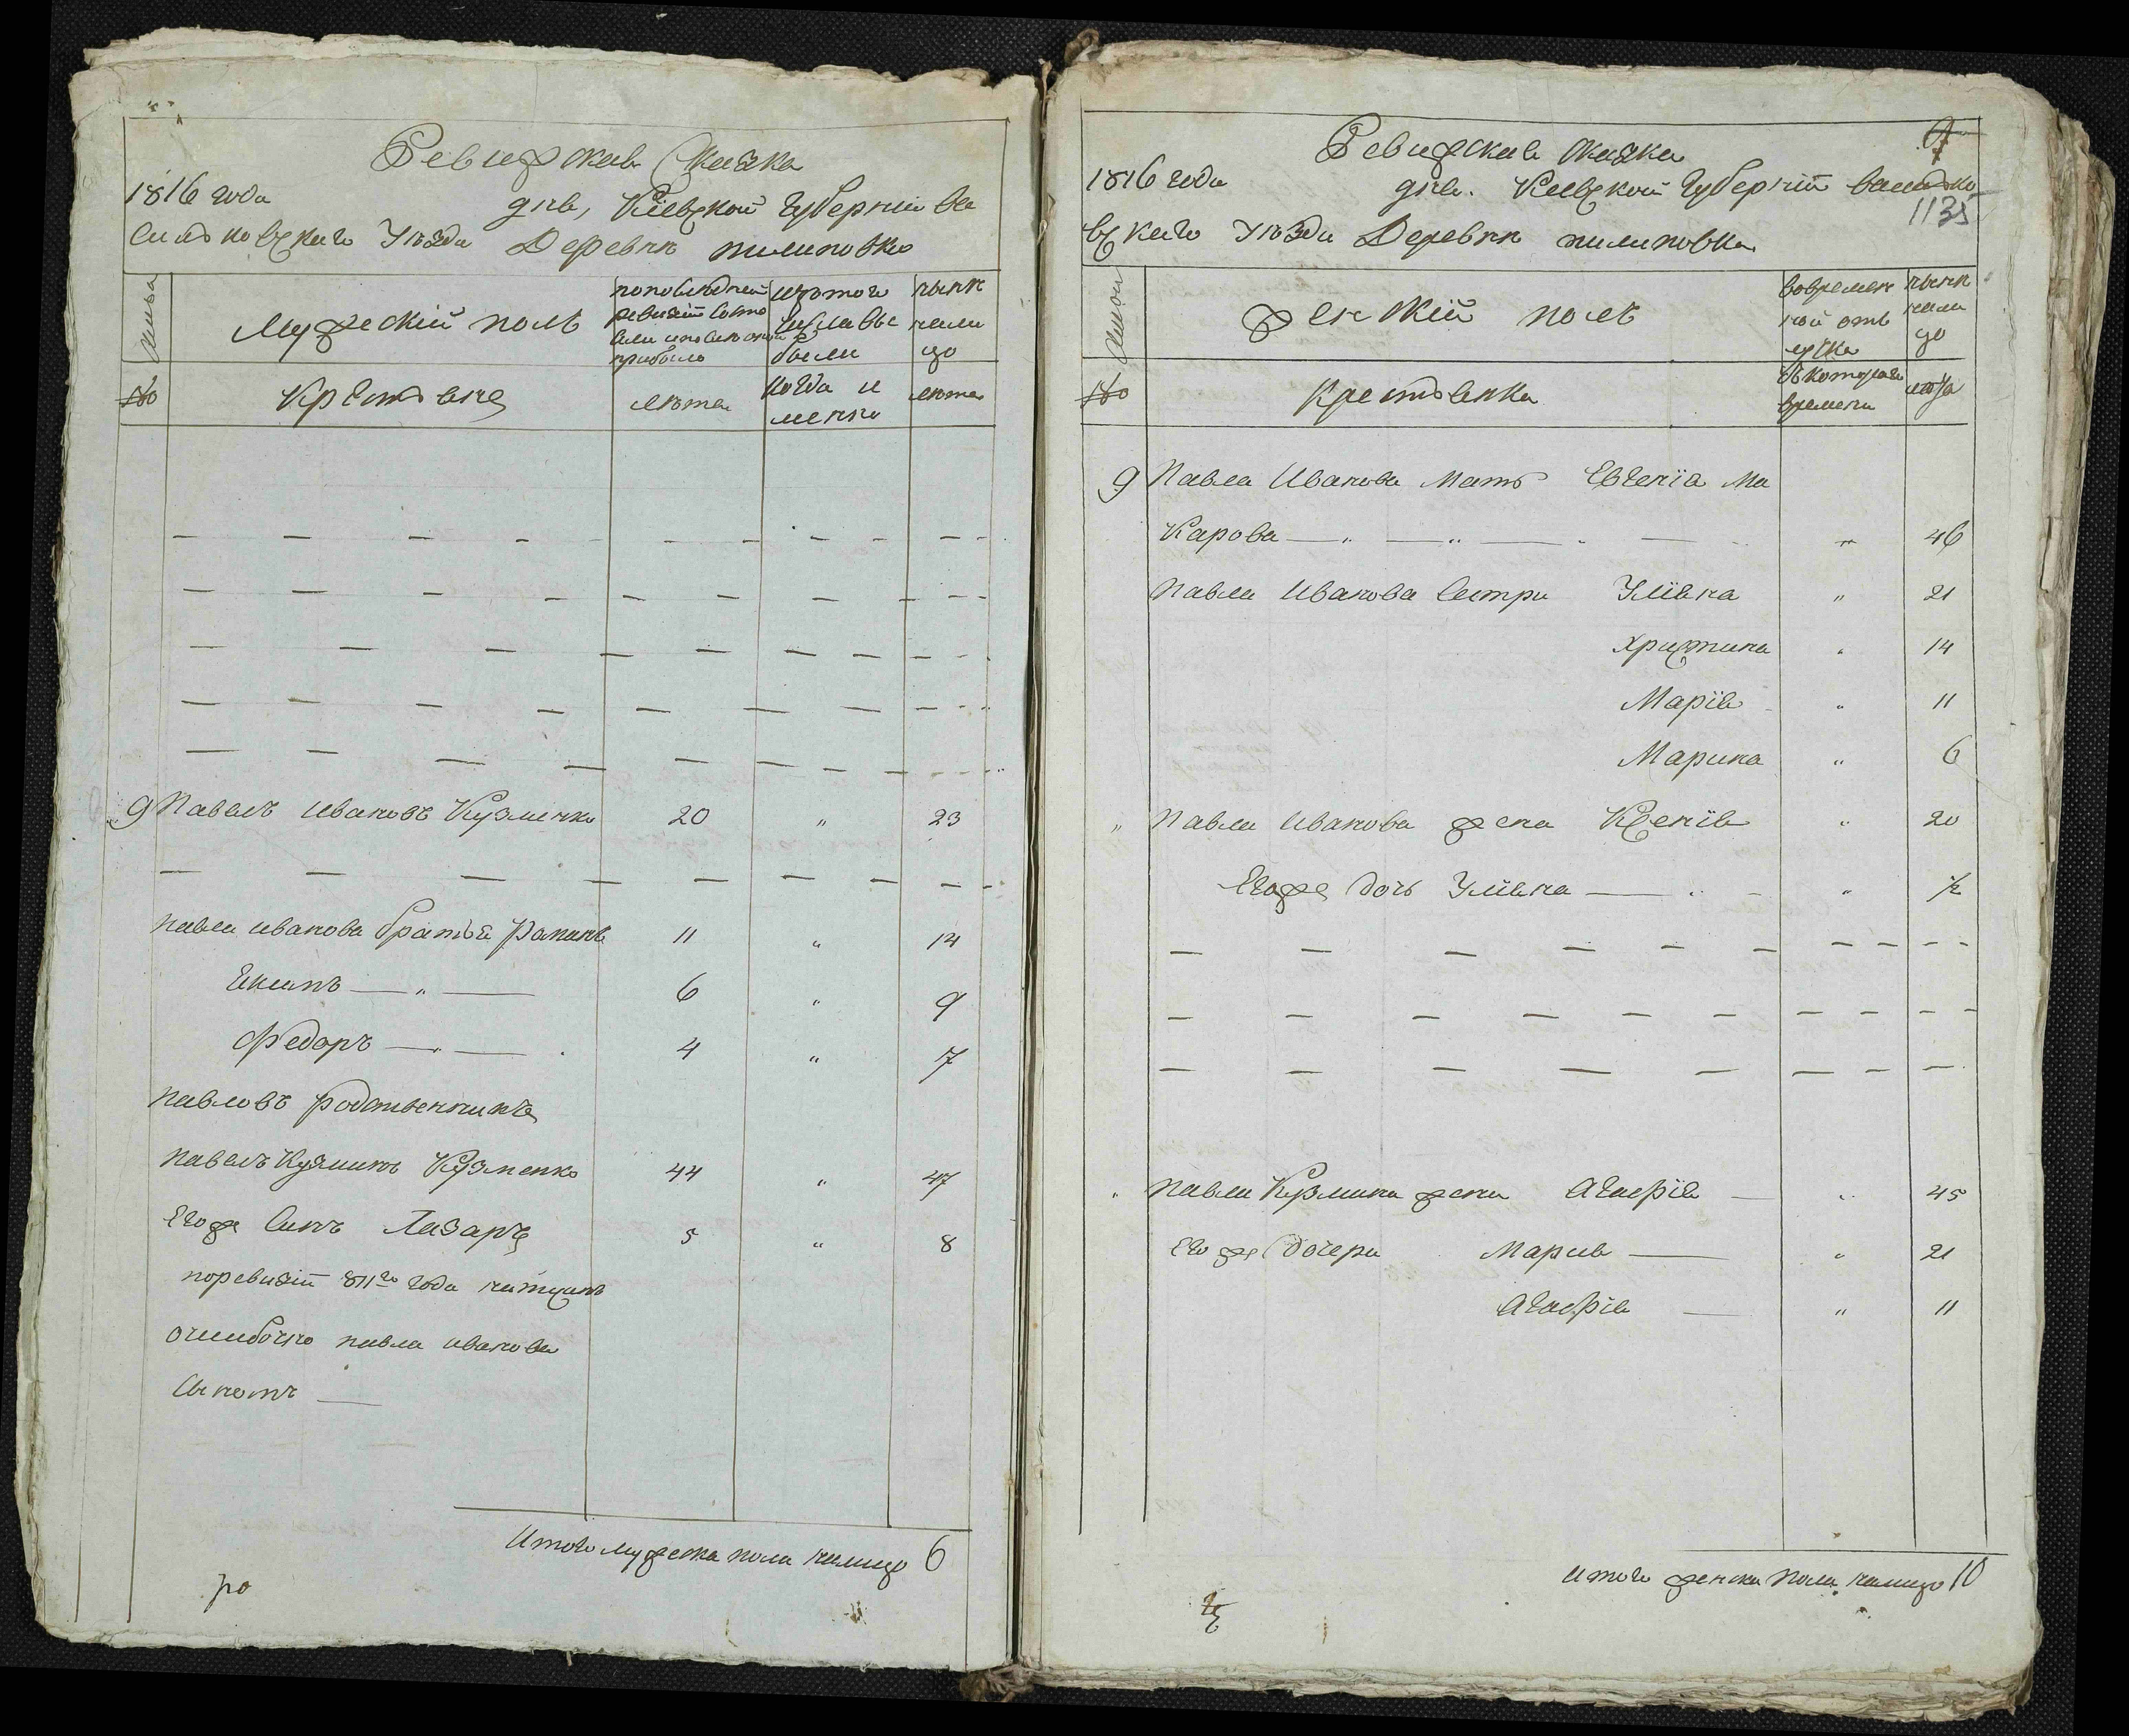 Ревижская Сказка
1816 года дня, Кіевской губерніи Ва
сильковскаго Уезда Деревни пилиповки
Семьи
Мужескій полъ
попоследней ревизіи состояли и после оной прибыло
изтого числа выбыли
ныне налицо
№
Крестьяне
лета
когда именно
лета
9 Павелъ Ивановъ Кузменко 20 „ 23
павла иванова братья Романъ 11 „ 14
Екимъ — „ — 6 „ 9
Федоръ — „ — 4 „ 7
павловъ родственникъ
павелъ Кузминъ Кузменко 44 „ 47
Егоже Синъ Лазаръ 5 „ 8
поревизіи 811го года написанъ
ошибочно павла иванова
Сыномъ —
Итого мужеска пола налицо 6
ро
Ревижская сказка
9
1816 года дня. Киевской губерніи Василько
1135
вскаго Уезда Деревни пилиповки
Семьи
Женскій полъ
вовременной отлучке
ныне налицо
№
Крестьянки
съ котораго времени
лета
9 Павла Иванова Мать Евгенія Ма
Карова — „ — „ — „ 46
павла Иванова Сестри Уліяна „ 21
Христина „ 14
Марія „ 11
Марина „ 6
„ павла Иванова жена Ксенія „ 20
Егоже дочь Уліяна — „ ½
„ павла Кузмина жена Агафія — „ 45
Егоже дочери Мария — „ 21
Агафія — „ 11
итого женска пола налицо 10